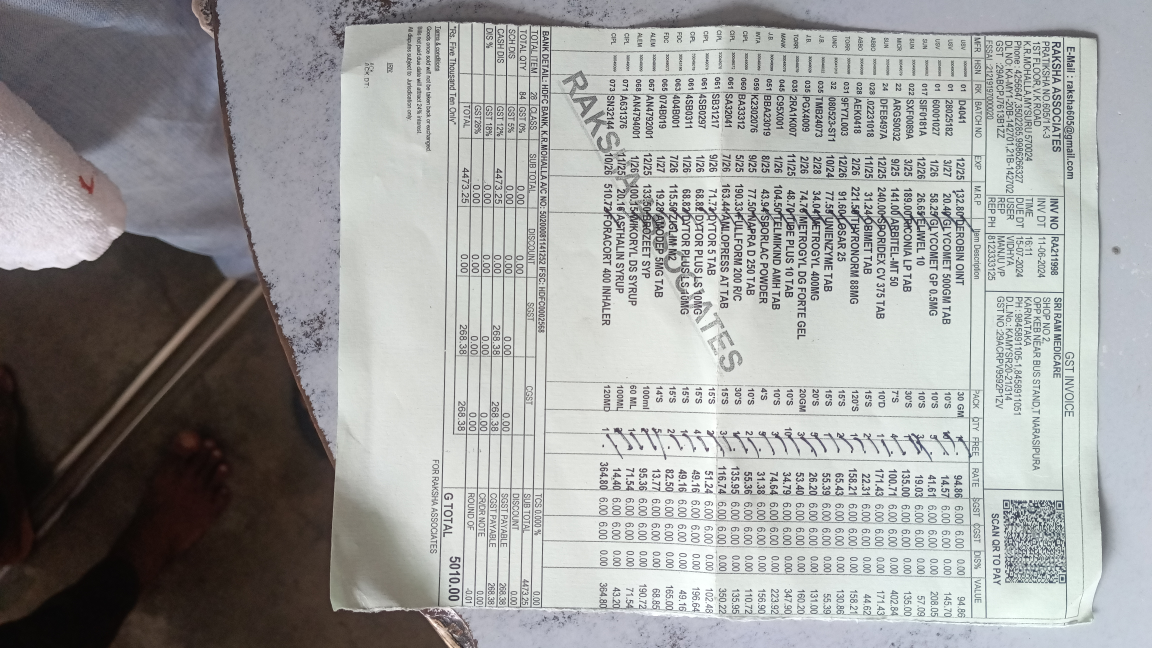 E-Mail : raksha605@gmail.com
GST INVOICE
RAKSHA ASSOCIATES
PRATIKSHA NO 805/1 K-3
1ST FLOOR,V.V.K ROAD
K.R.MOHALLA,MYSURU 570024
GST : 29ABCPU7613B1ZZ
INV NO RA211998
INV DT 11-06-2024
TIME 16:11
DUE DT 15-07-2024
USER VIDHYA
REP MANJU VP
REP PH 8123333125
SRI RAM MEDICARE
SHOP NO 2,
OPP KEB NEAR BUS STAND,T NARASIPURA
KARNATAKA
GST NO :29ACRPV9592P1ZV
SCAN QR TO PAY
MFR HSN RK BATCH NO EXP M.R.P Item Description PACK QTY FREE RATE SGST CGST DIS% VALUE
USV 01 D4041 12/25 132.80 DEROBIN OINT 30 GM 94.86 6.00 6.00 0.00 94.86
USV 01 28025182 3/27 GLYCOMET 500GM TAB 10'S 14.57 6.00 6.00 0.00 145.70
USV 01 60001027 1/26 58.25 GLYCOMET GP 0.5MG 10'S 41.61 6.00 6.00 0.00 208.05
SUN 017 SIF0181A 12/26 10'S 19.03 6.00 6.00 0.00 57.09
SUN 022 SXF0089A 3/25 189.00 30'S 135.00 6.00 6.00 0.00 135.00
22 ARCSS0032 9/25 141.00 ARBITEL-MT 50 7'S 100.71 6.00 6.00 0.00 402.84
SUN 24 DFE8497A 3/26 240.00 SPORIDEX CV 375 TAB 10'D 171.43 6.00 6.00 0.00 171.43
ABBO 028 11/25 31.24 OBIMET TAB 15'S 22.31 6.00 6.00 0.00 44.62
ABBO 028 AEK0418 2/26 THYRONORM 88MG 120'S 158.21 6.00 6.00 0.00 158.21
TORR 031 9F7YL003 12/26 91.60 LOSAR 25 15'S 65.43 6.00 6.00 0.00 130.86
UNIC 32 10/24 77.55 UNIENZYME TAB 15'S 55.39 6.00 6.00 0.00 55.39
J.B. 035 TMB24073 3/28 METROGYL 400MG 20'S 26.20 6.00 6.00 0.00 131.00
J.B. 035 PGX4009 2/26 74.76 METROGYL DG FORTE GEL 20GM 53.40 6.00 6.00 0.00 160.20
TORR 035 2RA1K007 11/25 48.70 PLUS 10 TAB 10'S 34.79 6.00 6.00 0.00 347.90
MANK 046 1/26 104.50 TELMIKIND AMH TAB 10'S 74.64 6.00 6.00 0.00 223.92
J.B. 051 BBA23019 8/25 43.94 SPORLAC POWDER 4'S 31.38 6.00 6.00 0.00 156.90
INTA 059 K2302076 9/26 77.50 NAPRA D 250 TAB 10'S 55.36 6.00 6.00 0.00 110.72
CIPL 060 BA33312 5/25 190.33 FULLFORM 200 R/C 30'S 135.95 6.00 6.00 0.00 135.95
CIPL 061 SA32041 7/26 163.44 AMLOPRESS AT TAB 15'S 116.74 6.00 6.00 0.00 350.22
CIPL 061 SB31217 9/26 DYTOR 5 TAB 15'S 51.24 6.00 6.00 0.00 102.48
CIPL 061 4SB0297 1/26 DYTOR PLUS LS 10MG 15'S 49.16 6.00 6.00 0.00 196.64
CIPL 061 4SB0311 1/26 DYTOR PLUS LS 15'S 49.16 6.00 6.00 0.00 49.16
FDC 063 404B001 7/26 115.50 15'S 82.50 6.00 6.00 0.00 165.00
FDC 065 074B019 1/27 5MG TAB 14'S 13.77 6.00 6.00 0.00 68.85
ALEM 067 AN4792001 12/25 SYP 100ml 95.36 6.00 6.00 0.00 190.72
ALEM 068 AN4794001 1/26 WIKORYL DS SYRUP 60 ML 71.54 6.00 6.00 0.00 71.54
CIPL 071 A631376 11/25 ASTHALIN SYRUP 100ML 14.40 6.00 6.00 0.00 43.20
CIPL 073 SN32144 10/26 510.72 FORACORT 400 INHALER 120MD 364.80 6.00 6.00 0.00 364.80
RAKSHA ASSOCIATES
BANK DETAIL: HDFC BANK, K.R.MOHALLA A/C NO: 50200081141252 IFSC: HDFC0002568
TOTAL ITEM 28 CLASS SUB TOTAL DISCOUNT SGST CGST
TOTAL QTY 84 GST 0% 0.00 0.00
SCH DIS GST 5% 0.00 0.00 0.00 0.00
CASH DIS GST 12% 4473.25 0.00 268.38 268.38
DIS % GST 18% 0.00 0.00 0.00 0.00
GST28% 0.00 0.00 0.00 0.00
TOTAL 4473.25 0.00 268.38 268.38
TCS 0.000 % 0.00
SUB TOTAL 4473.25
DISCOUNT 0.00
SGST PAYABLE 268.38
CGST PAYABLE 268.38
CR/DR NOTE 0.00
ROUND OF -0.01
"Rs. Five Thousand Ten Only"
G TOTAL 5010.00
Terms & conditions
Goods once sold will not be taken back or exchanged
Bills not paid due date will attract 24% interest.
All disputes subject to Jurisdiction only.
FOR RAKSHA ASSOCIATES